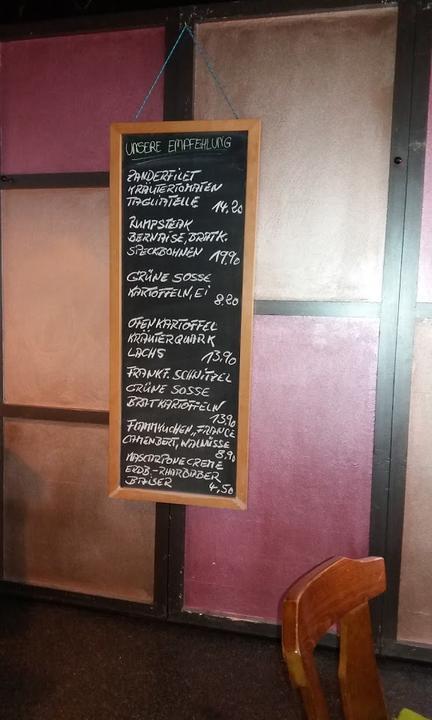 UNSERE EMPFEHLUNG
ZANDERFILET
KRÄUTERTOMATEN
TAGLIATELLE 14,20
RUMPSTEAK
BERNAISE, BRATK.
SPECKBOHNEN 19,90
GRÜNE SOSSE
KARTOFFELN, Ei 8.20
OFENKARTOFFEL
KRÄUTERQUARK
LACHS 13,90
FRANKF. SCHNITZEL
GRÜNE SOSSE
BRATKARTOFFELN
13,90
FLAMMKUCHEN „FRANCE
CAMEMBERT, WALNÜSSE
8,90
MASCARPONECREME
ERDB.-RHABARBER
BAISER 4,50